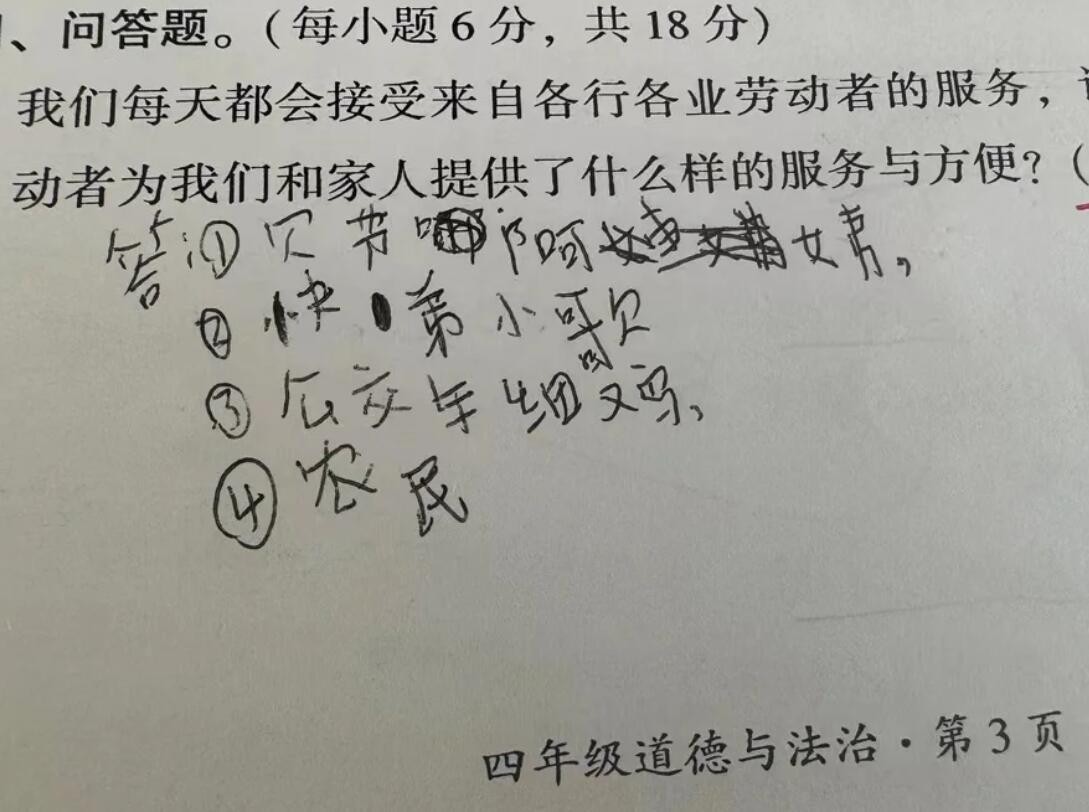 、问答题。(每小题6分，共18分)
我们每天都会接受来自各行各业劳动者的服务，
动者为我们和家人提供了什么样的服务与方便？(
答：①
② 快弟小哥
③ 公交车
④ 农民
四年级道德与法治·第3页